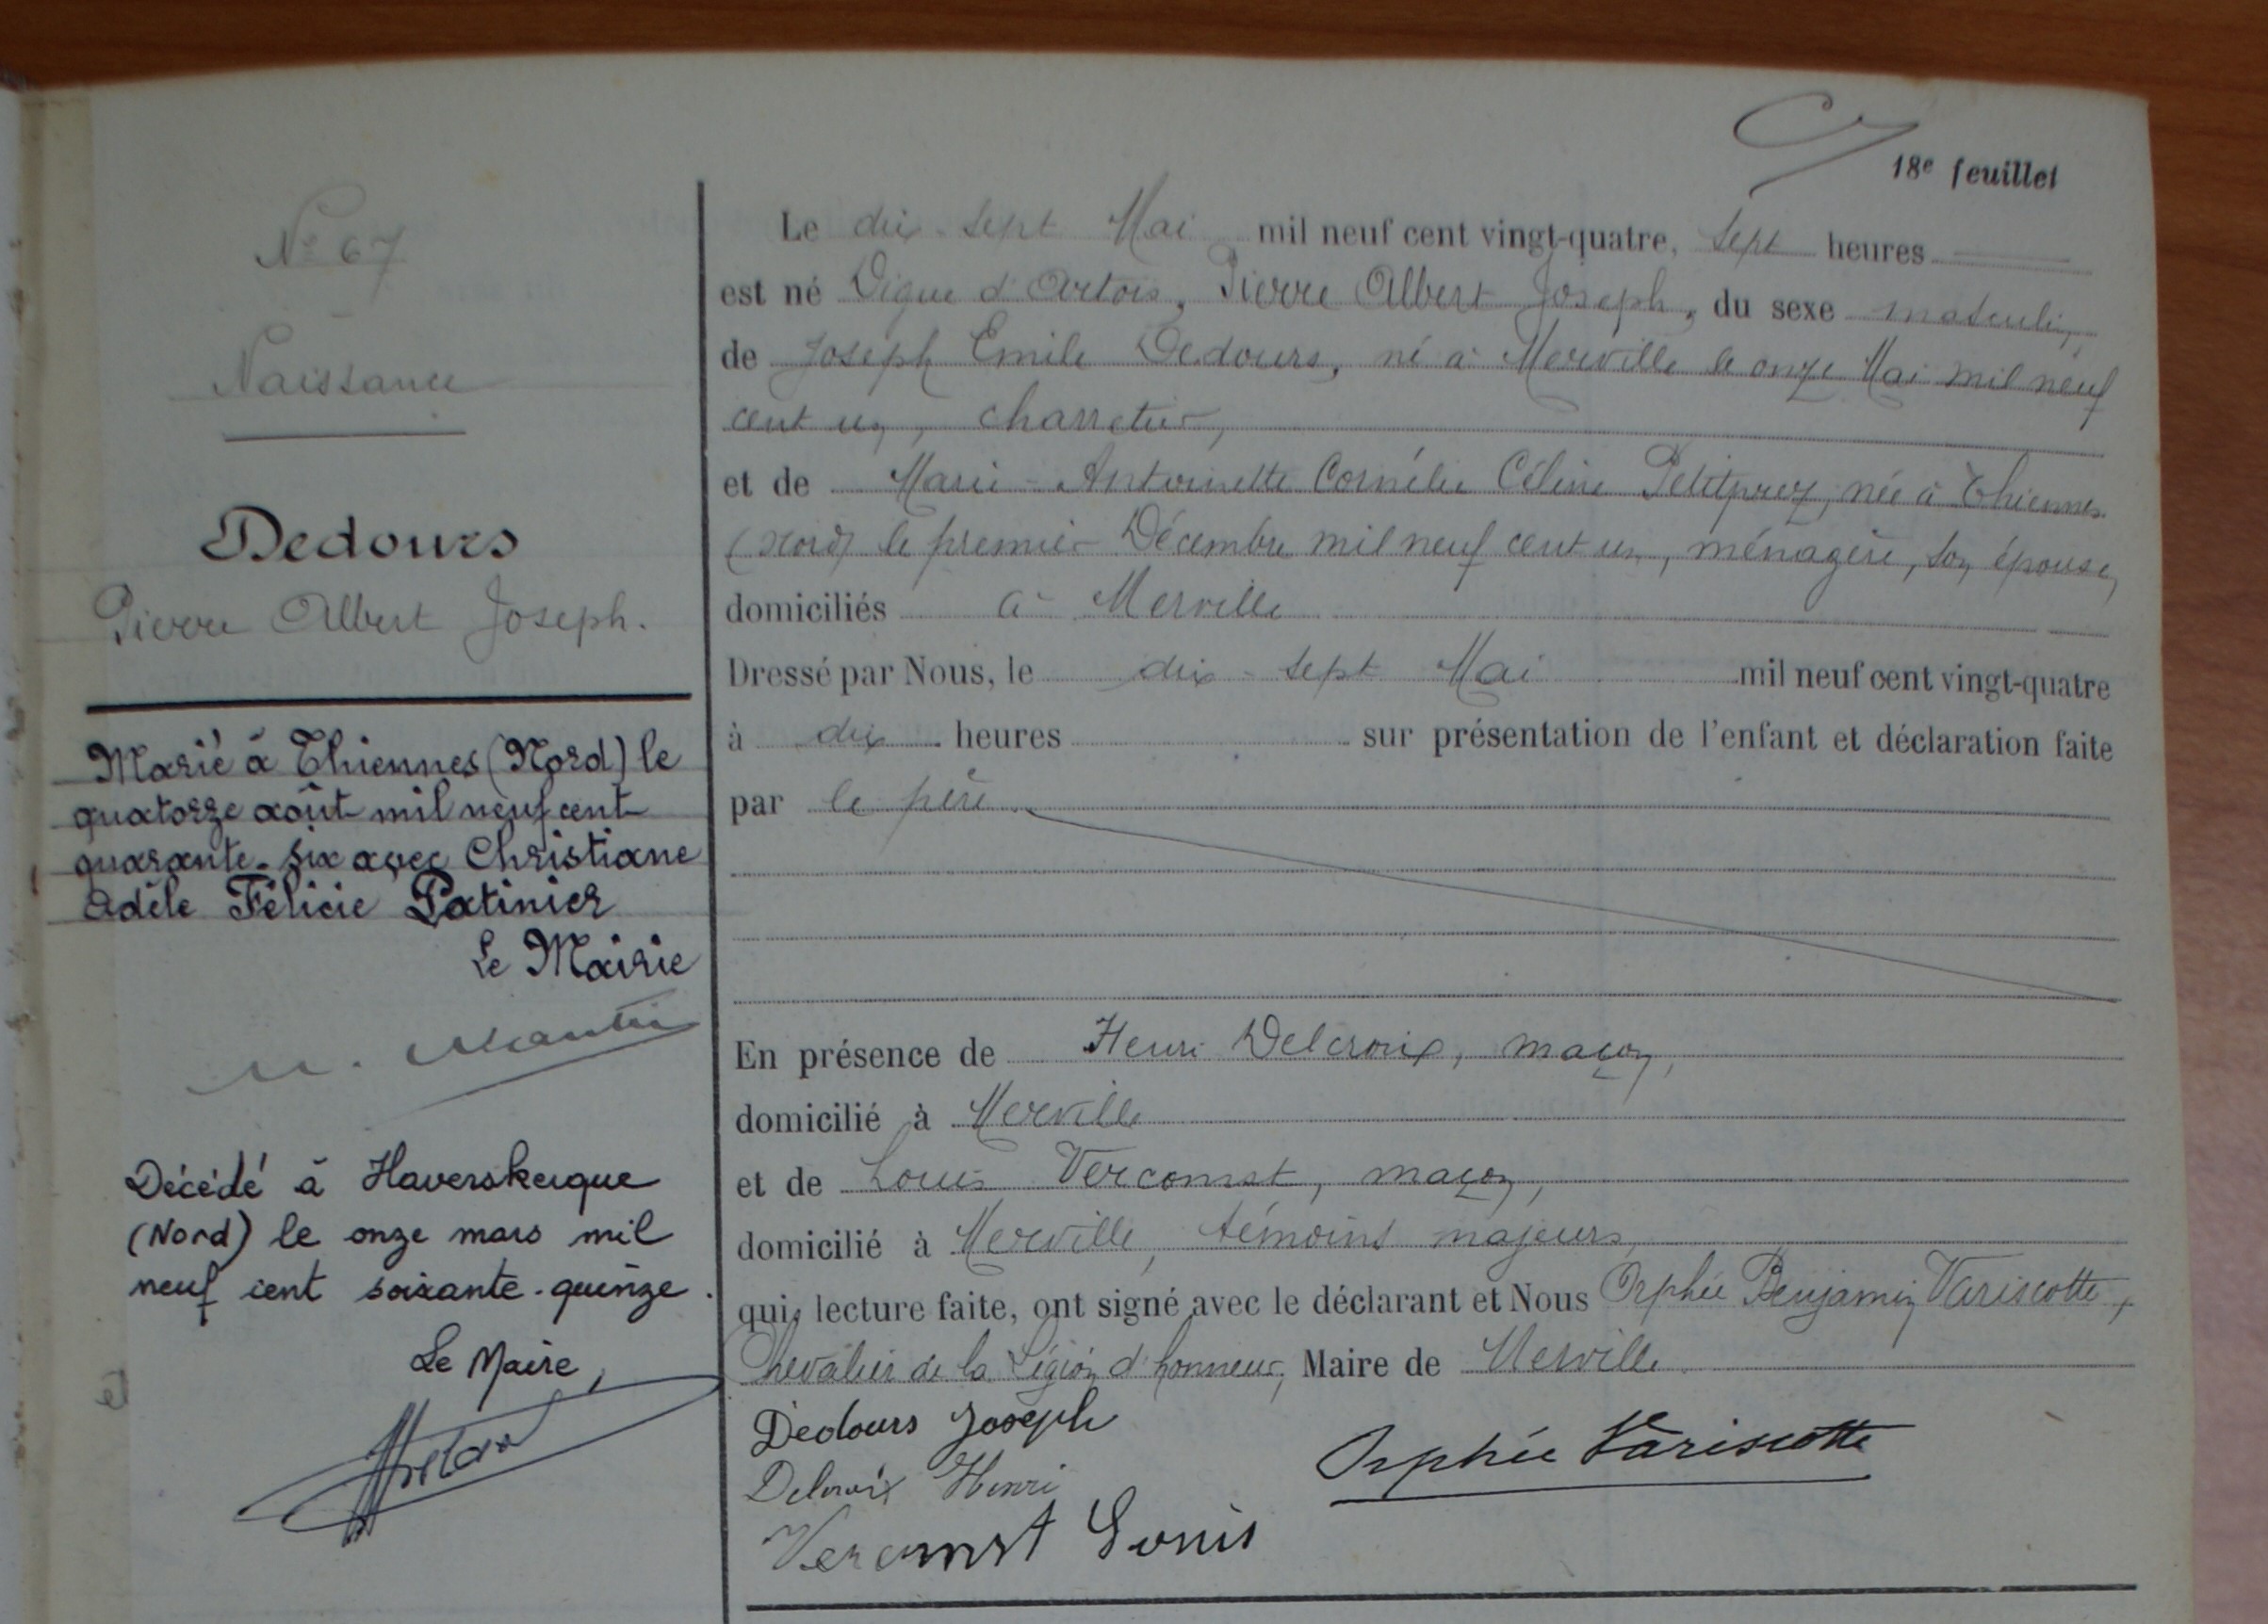 18e feuillet
N° 67
Naissance
Dedours
Pierre Albert Joseph.
Marié à Thiennes (Nord) le
quatorze août mil neuf cent
quarante-six avec Christiane
Adèle Félicie Patinier
Le Mairie
Décédé à Haverskerque
(Nord) le onze mars mil
neuf cent soixante-quinze.
Le Maire,
Le dix-sept Mai mil neuf cent vingt-quatre, sept heures
est né Digue d'Artois, Pierre Albert Joseph, du sexe masculin,
de Joseph Emile Dedours, né à Merville le onze Mai mil neuf
cent un, charretier,
et de Marie-Antoinette Cornélie Céline Petitprez, née à Thiennes
(Nord) le premier Décembre mil neuf cent un, ménagère, son épouse,
domiciliés à Merville
Dressé par Nous, le dix-sept Mai mil neuf cent vingt-quatre
à dix heures sur présentation de l'enfant et déclaration faite
par le père
En présence de Henri Delcroix, maçon,
domicilié à Merville
et de Louis Vercomst, maçon,
domicilié à Merville, témoins majeurs,
qui, lecture faite, ont signé avec le déclarant et Nous Orphée Benjamin Variscotte,
Chevalier de la Légion d'honneur, Maire de Merville.
Dedours Joseph
Orphée Variscotte
Delcroix Henri
Vercomst Louis